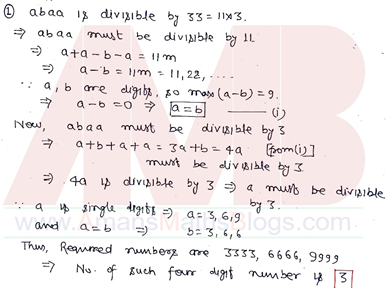 ① abaa is divisible by 33 = 11×3.
⇒ abaa must be divisible by 11
⇒ a+a-b-a = 11m
⇒ a-b = 11m = 11, 22, ....
∵ a, b are digits, so max(a-b) = 9.
⇒ a-b = 0 ⇒ a=b —— (i)
Now, abaa must be divisible by 3
⇒ a+b+a+a = 3a+b = 4a [from(i)]
must be divisible by 3
⇒ 4a is divisible by 3 ⇒ a must be divisible by 3.
∵ a is single digits ⇒ a = 3, 6, 9
and a = b ⇒ b = 3, 6, 6
Thus, Required numbers are 3333, 6666, 9999
⇒ No. of such four digit number is 3
www.AmansMathsBlogs.com